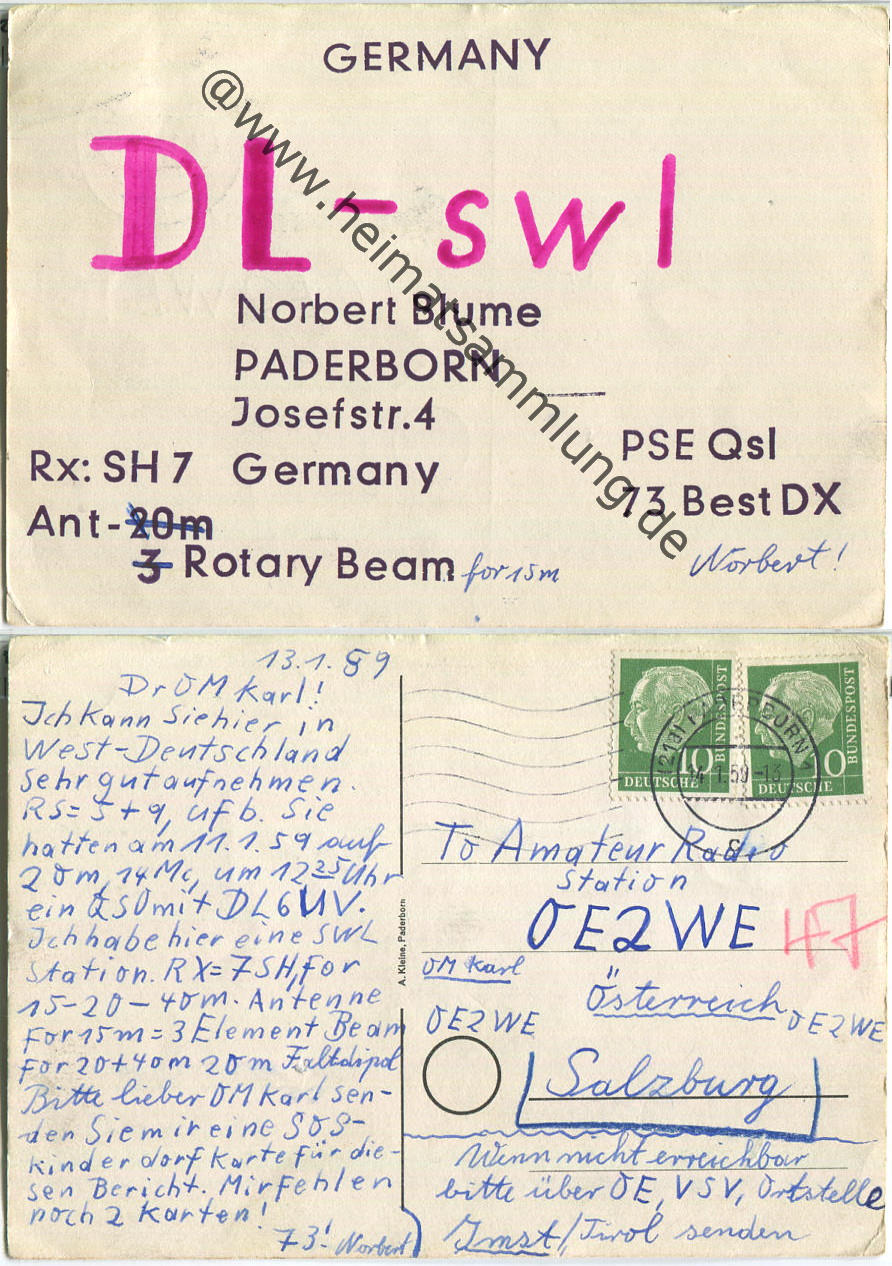 GERMANY
DL-swl
Norbert Blume
PADERBORN
Josefstr.4
Rx: SH 7 Germany
Ant - 20m
3 Rotary Beam for 15m
PSE Qsl
73 Best DX
Norbert!
@www.heimatsammlung.de
13.1.59
Dr OM Karl!
Ich Kann Sie hier in
West-Deutschland
sehr gut aufnehmen.
RS= 5+9, ufb. Sie
hatten am 11.1.59 auf
20m, 14 Mc, um 12 25 Uhr
ein QSO mit DL6UV.
Ich habe hier eine SWL
Station. RX=7SH, for
15-20-40m. Antenne
for 15m = 3 Element Beam
for 20+40m 20m Faltdipol
Bitte lieber OM Karl sen-
den Sie mir eine SOS-
kinderdorf Karte für die-
sen Bericht. Mir fehlen
noch 2 Karten!
73! Norbert
A. Kleine, Paderborn
DEUTSCHE BUNDESPOST 10
DEUTSCHE BUNDESPOST 10
PADERBORN
1.59-13
To Amateur Radio
Station
OE2WE
47
OM Karl
Österreich
OE2WE
OE2WE
Salzburg
Wenn nicht erreichbar
bitte über OE, VSV, Ortstelle
Imst/Tirol senden